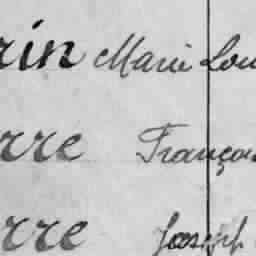 rin Marie Lou
rre Françoi
rre Joseph